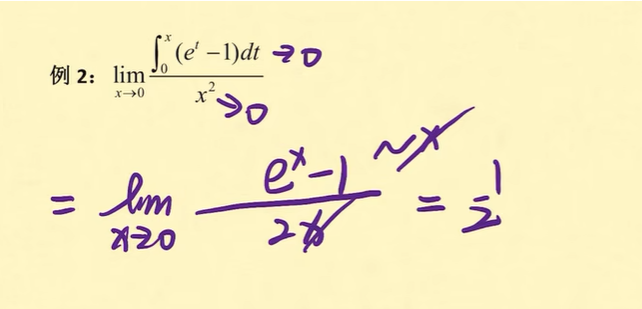 例 2： lim_{x→0} \frac{∫_0^x (e^t −1)dt}{x^2} →0 →0
= lim_{x→0} \frac{e^x −1}{2x} ~x = \frac{1}{2}